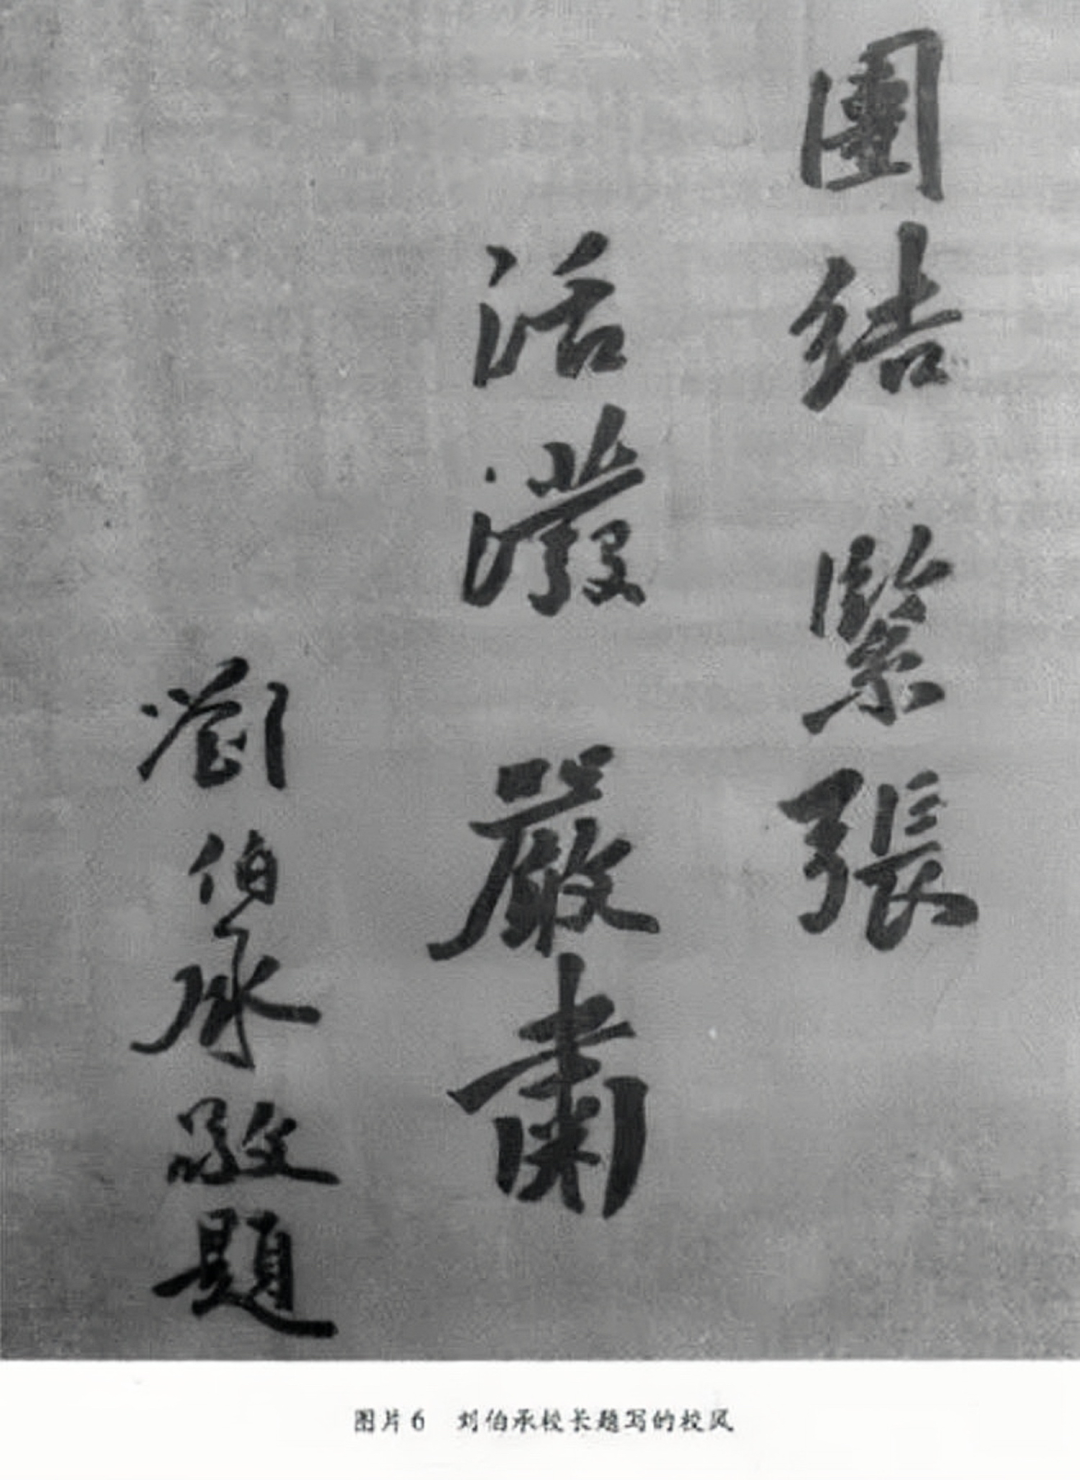 團結 緊張
活潑 嚴肅
劉伯承敬題
图片6 刘伯承校长题写的校风